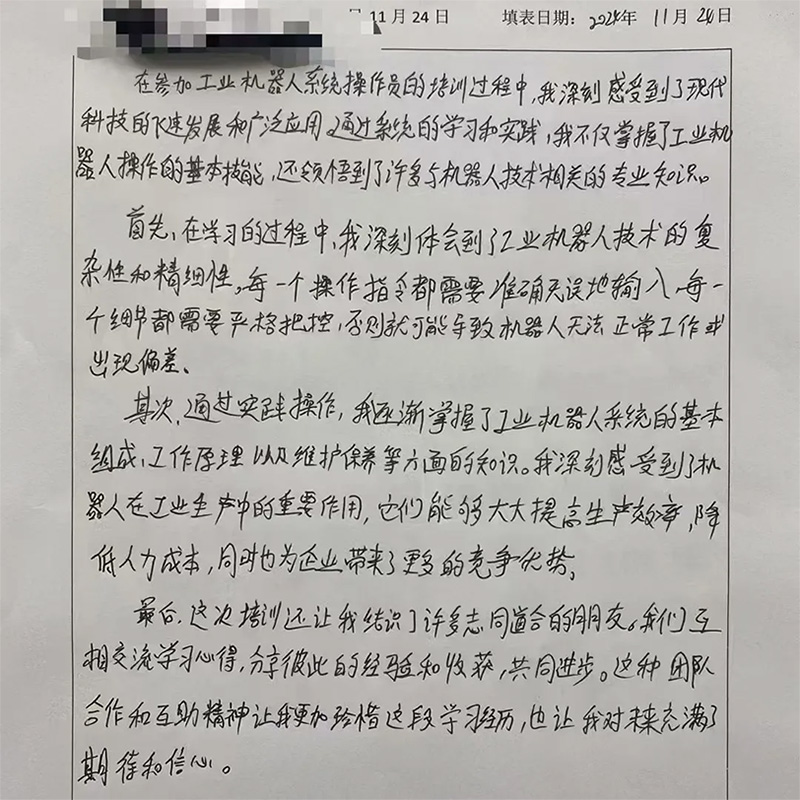 11月24日 填表日期：2024年 11月24日
在参加工业机器人系统操作员的培训过程中，我深刻感受到了现代
科技的飞速发展和广泛应用，通过系统的学习和实践，我不仅掌握了工业机
器人操作的基本技能，还领悟到了许多与机器人技术相关的专业知识。
首先，在学习的过程中，我深刻体会到了工业机器人技术的复
杂性和精细性，每一个操作指令都需要准确无误地输入，每一
个细节都需要严格把控，否则就可能导致机器人无法正常工作或
出现偏差、
其次，通过实践操作，我逐渐掌握了工业机器人系统的基本
组成，工作原理以及维护保养等方面的知识。我深刻感受到了机
器人在工业生产中的重要作用，它们能够大大提高生产效率，降
低人力成本，同时也为企业带来了更多的竞争优势、
最后，这次培训还让我结识了许多志同道合的朋友。我们互
相交流学习心得，分享彼此的经验和收获，共同进步。这种团队
合作和互助精神让我更加珍惜这段学习经历，也让我对未来充满了
期待和信心。